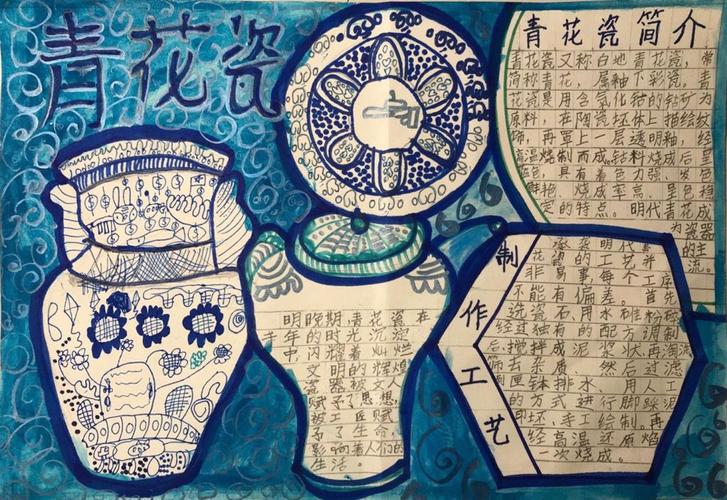 青花瓷
青花瓷简介
青花瓷又称白地青花瓷，常
简称青花，属釉下彩瓷。青
花瓷是用含氧化钴的钴矿为
原料，在陶瓷坯体上描绘纹
饰，再罩上一层透明釉，经
高温烧制而成。钴料烧成后呈
蓝色，具有着色力强、发色
鲜艳、烧成率高、呈色稳
定的特点。明代青花成
为瓷器
的主
流。
明晚期，青花瓷在
千年的时光沉淀
中闪耀着灿烂
文明的辉煌
瓷器被文人
赋予了思想，
被工匠赋
予了生命，
影响着人们的
生活。
制作工艺
承袭明代青
花瓷的工艺并
非易事每个工序
不能有偏差。首先
选瓷石用水碓粉碎
经过独有的配方调制
后，搅拌成泥浆状再淘洗
筛去杂质、然后过滤
匣钵排水、用人工
的方式进行脚踩泥
印坯、手工绘制。再
经高温还原焰
一次烧成。